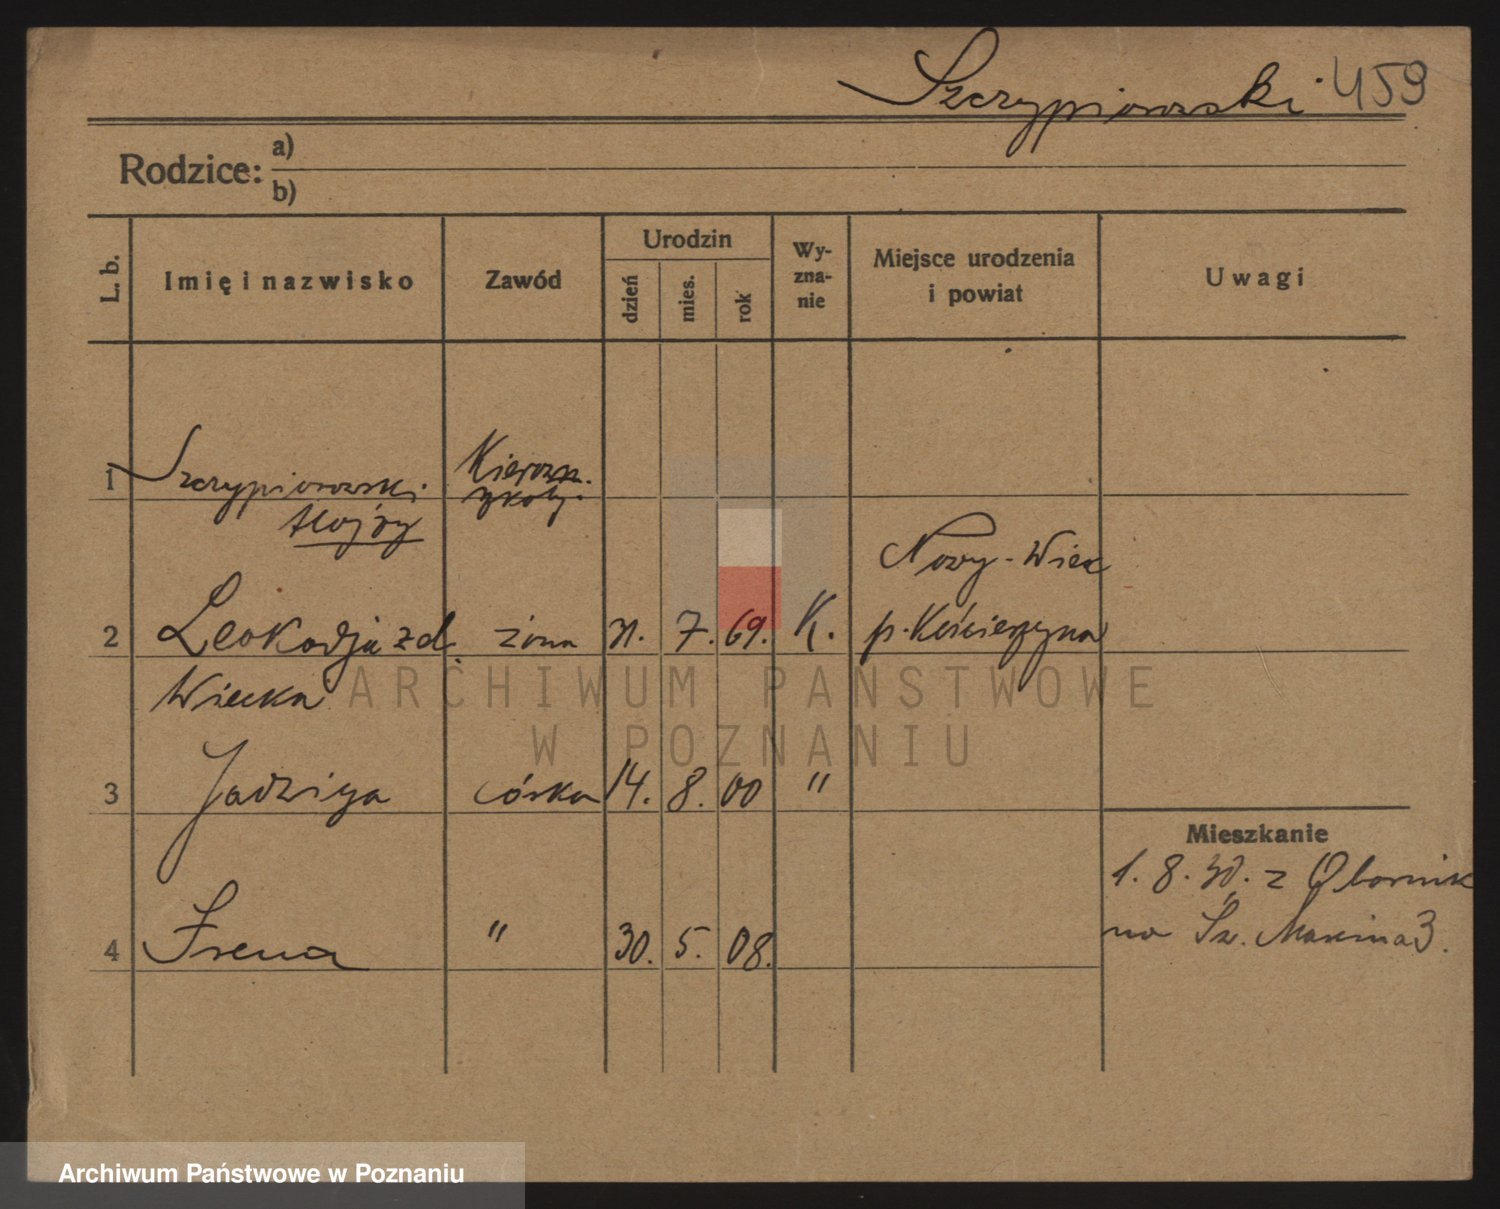 Szczypiorowski 459
Rodzice: a)
b)
L. b.
Imię i nazwisko
Zawód
Urodzin
dzień
mies.
rok
Wy-
zna-
nie
Miejsce urodzenia
i powiat
Uwagi
1 Szczypiorowski Kierown.
Alojzy szkoły.
Nowy-Wiec
2 Leokadja zd. żona 11. 7. 69. K. p. Kościerzyna
Wiecka
3 Jadwiga córka 14. 8. 00 "
Mieszkanie
1. 8. 30. z Obornik
na Św. Marcina 3.
4 Irena " 30. 5. 08.
ARCHIWUM PAŃSTWOWE
W POZNANIU
Archiwum Państwowe w Poznaniu